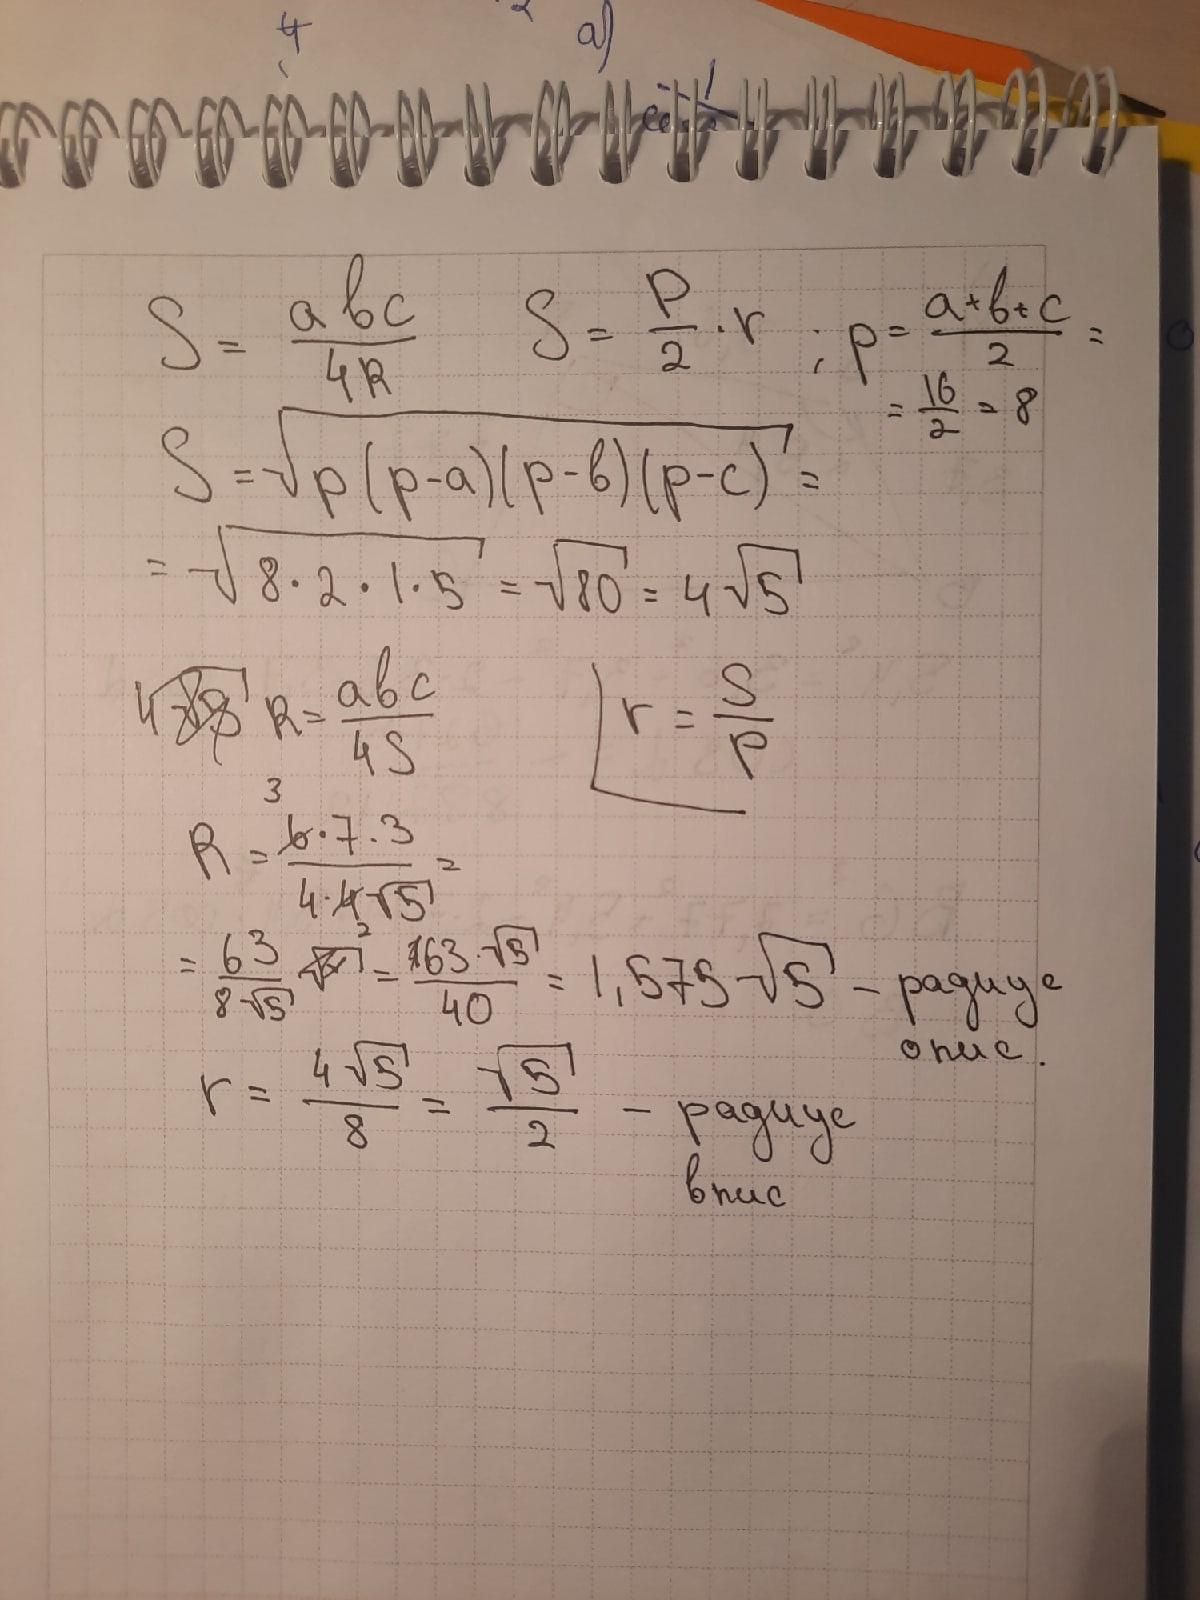 4 а)
S = abc/4R S = P/2 · r ; p = a+b+c/2 =
= 16/2 = 8
S = √p(p-a)(p-b)(p-c) =
= √8·2·1·5 = √80 = 4√5
R = abc/4S r = S/P
3
R = 6·7·3/4·4√5 =
2
= 63/8√5 = 63·√5/40 = 1,575√5 – радиус
опис.
r = 4√5/8 = √5/2 – радиус
впис